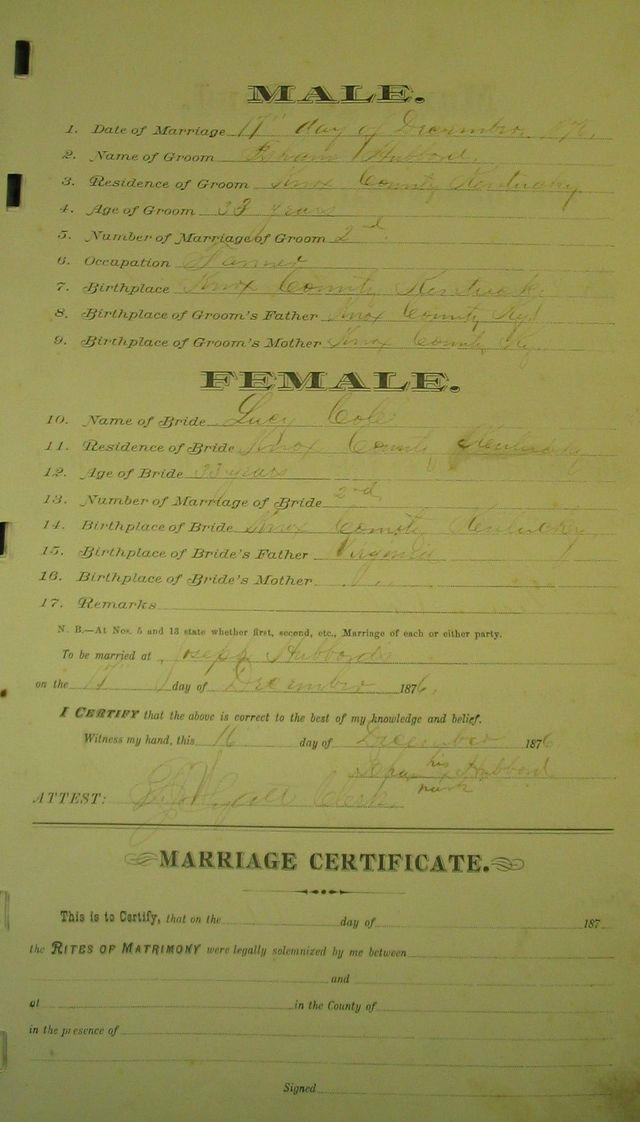 MALE.
1. Date of Marriage 17" day of December 1876.
2. Name of Groom Hubbard.
3. Residence of Groom Knox County Kentucky
4. Age of Groom 33 years
5. Number of Marriage of Groom 2d.
6. Occupation Farmer
7. Birthplace Knox County Kentucky.
8. Birthplace of Groom's Father Knox County Ky
9. Birthplace of Groom's Mother Knox County Ky.
FEMALE.
10. Name of Bride Lucy Cole
11. Residence of Bride Knox County Kentucky
12. Age of Bride 33 years
13. Number of Marriage of Bride 2nd,
14. Birthplace of Bride Knox County Kentucky,
15. Birthplace of Bride's Father Virginia
16. Birthplace of Bride's Mother. " "
17. Remarks
N. B.—At Nos. 5 and 13 state whether first, second, etc., Marriage of each or either party.
To be married at Joseph Hubbard's
on the 17" day of December 1876,
I CERTIFY that the above is correct to the best of my knowledge and belief.
Witness my hand, this 16 day of December 1876
his
Hubbard
mark
ATTEST: Clerk
MARRIAGE CERTIFICATE.
This is to Certify, that on the day of 187
the RITES OF MATRIMONY were legally solemnized by me between
and
at in the County of
in the presence of
Signed